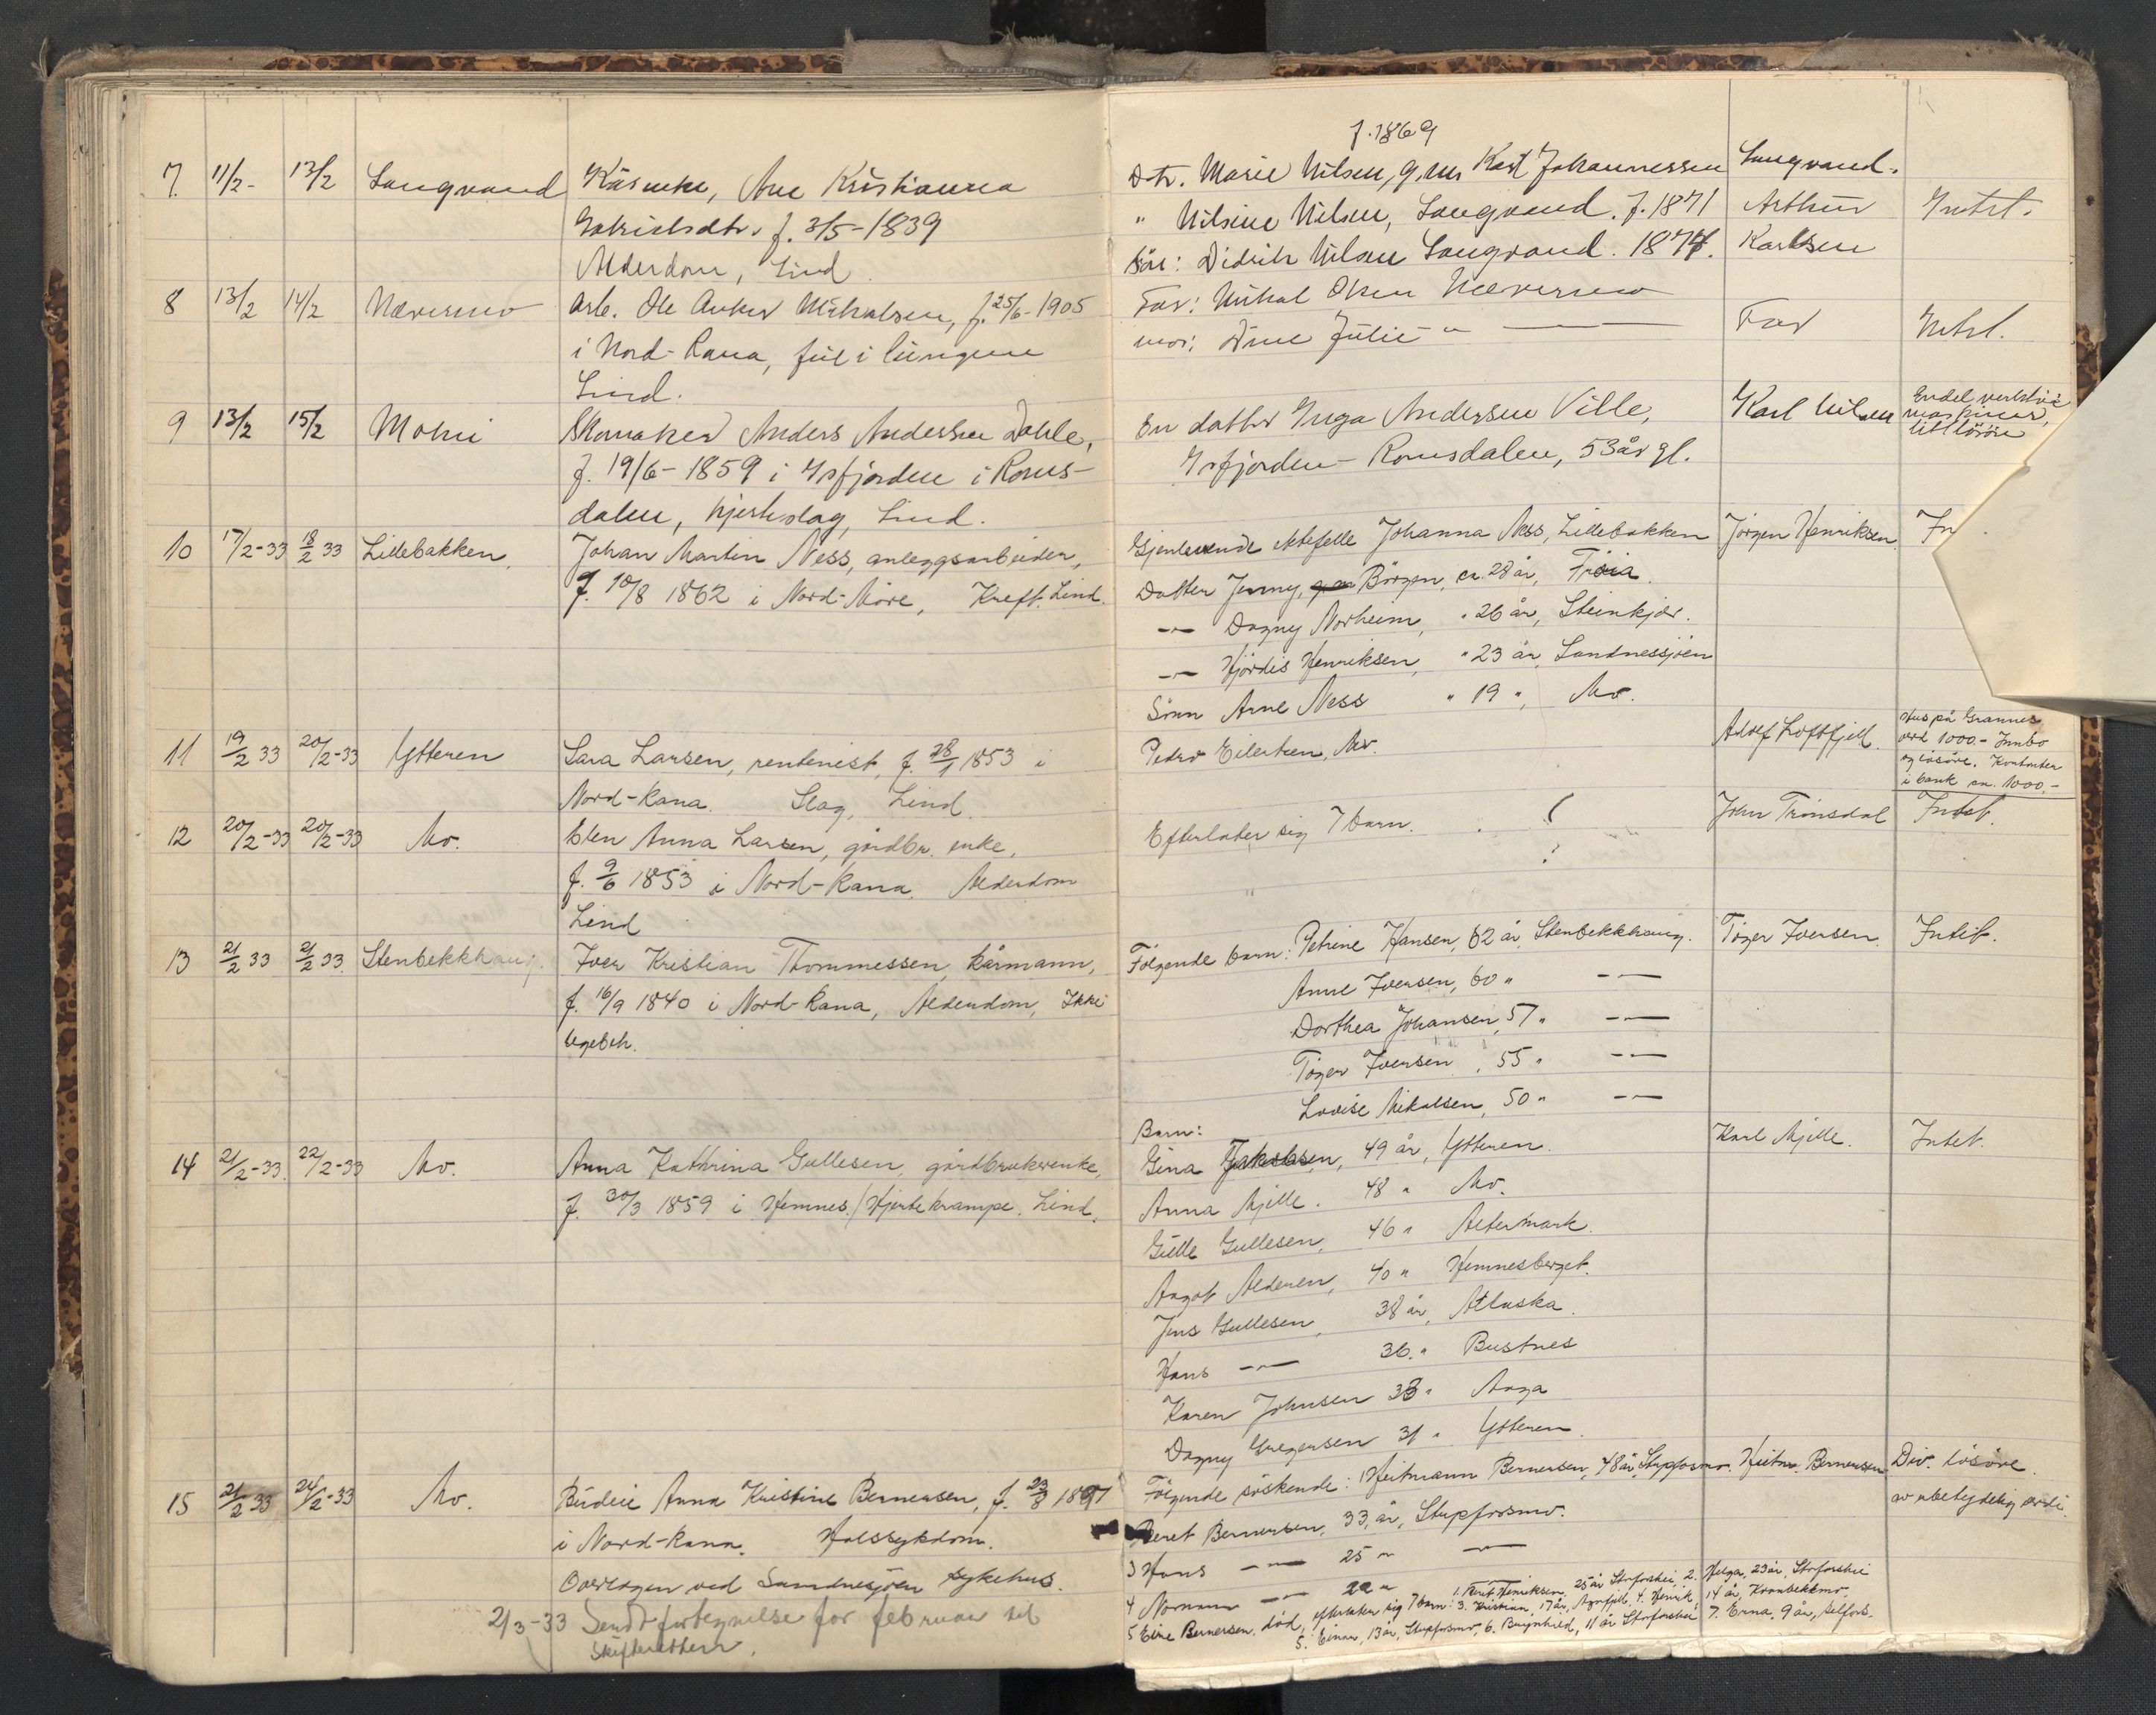 f. 1869
7. 11/2- 13/2 Langvand Kårenke, Ane Kristianna Dtr. Marie Nilsen, g.m. Karl Johannessen Langvand.
f. 3/5-1839 " Nilsine Nilsen, Langvand. f. 1871 Arthur Intet.
Alderdom, Lind. Søn: Didrik Nilsen Langvand. 1874. Karlsen
8 13/2 14/2 Nævernes Arb. Ole Anker Mikalsen, f. 25/6-1905 Far: Mikal Olsen
i Nord-Rana, i lungene mor: Julie -"- Far Intet.
Lind.
9 13/2 15/2 Moheia Skomaker Anders Andersen Dahle, En datter Inga Andersen Ville, Karl Nilsen Endel verktøi
maskiner,
litt løsøre
f. 19/6-1859 i Isfjorden i Roms- Isfjorden - Romsdalen, 53 år gl.
dalen, hjerteslag, Lind.
10 17/2-33 18/2 33 Lillebakken. Johan Martin Ness, anleggsarbeider, Gjenlevende ektefelle Johanna Ness, Lillebakken Jørgen Henriksen. In
f. 10/8 1862 i Nord-Møre, Kreft. Lind. Datter Jenny, Børgen, ca. 28 år, Frøia.
-"- Dagny Norheim, " 26 år, Steinkjær.
-"- Hjørdis Henriksen, " 23 år, Sandnessjøen
Sønn Arne Ness " 19 ", Mo.
11 19/2 33 20/2-33 Ytteren Sara Larsen, rentenist, f. 28/1 1853 i Pedro Eilertsen, Mo. Adolf Loftfjell. Hus på Grannes,
verd 1000.- Innbo
og løsøre. Kontanter
i bank ca. 1000.-
Nord-Rana. Slag, Lind.
12 20/2-33 20/2-33 Mo. Elen Anna Larsen, gårdbr. enke, Efterlater sig 7 barn. John Trönsdal Intet.
f. 9/6 1853 i Nord-Rana. Alderdom ?
Lind
13 21/2 33 21/2 33. Stenbekkhaug. Iver Kristian Thommessen, kårmann, Følgende barn: Petrine Hansen, 62 år, Stenbekkhaug. Tøger Iversen. Intet.
f. 16/9 1840 i Nord-Rana, Alderdom, Ikke Anne Iversen, 60 " -"-
legebeh. Dorthea Johansen, 57 " -"-
Tøger Iversen, 55 " -"-
Lovise Mikalsen, 50 " -"-
Barn:
14 21/2-33. 22/2-33 Mo. Anna Kathrina Gullesen, gårdbrukerenke, Gina Jakobsen, 49 år, Ytteren. Karl Mjelle. Intet.
f. 30/3 1859 i Hemnes./Hjertekrampe. Lind. Anna Mjelle. 48 " Mo.
Gulle Gullesen, 46 " Altermark.
Angot Alderen, 40 " Hemnesberget.
Jens Gullesen, 38 år, Atlaska.
Hans -"- 36. " Bustnes
Karen Johnsen 33 " Aaga
Dagny Gregersen 31 " Ytteren.
15 21/2-33 24/2-33 Mo. Budeie Anna Kristine Bernersen, f. 23/8 1897 Følgende søskende: 1 Heitmann Bernersen, 48 år, Stupforsmo. Heitm. Bernersen Div. løsøre
i Nord-Rana. Halssykdom. Beret Bernersen, 33, år, Stupforsmo. av ubetydelig verdi.
Overlægen ved Sandnesjøen sykehus. 3 Hans -"- 25 " -"-
4 Norman -"- 22 "
5 Eine Bernersen, død, efterlater sig 7 barn: 1. Beret Henriksen, 25 år Storforshei, 2. Helga, 23 år, Storforshei
3. Kristian, 17 år, 4. Henrik, 14 år,
5. Einar, 13 år, Stupforsmo, 6. Borghild, 11 år Storforshei 7. Erna, 9 år, Selfors.
2/3-33 Sendt fortegnelse for februar til
Skifteretten.